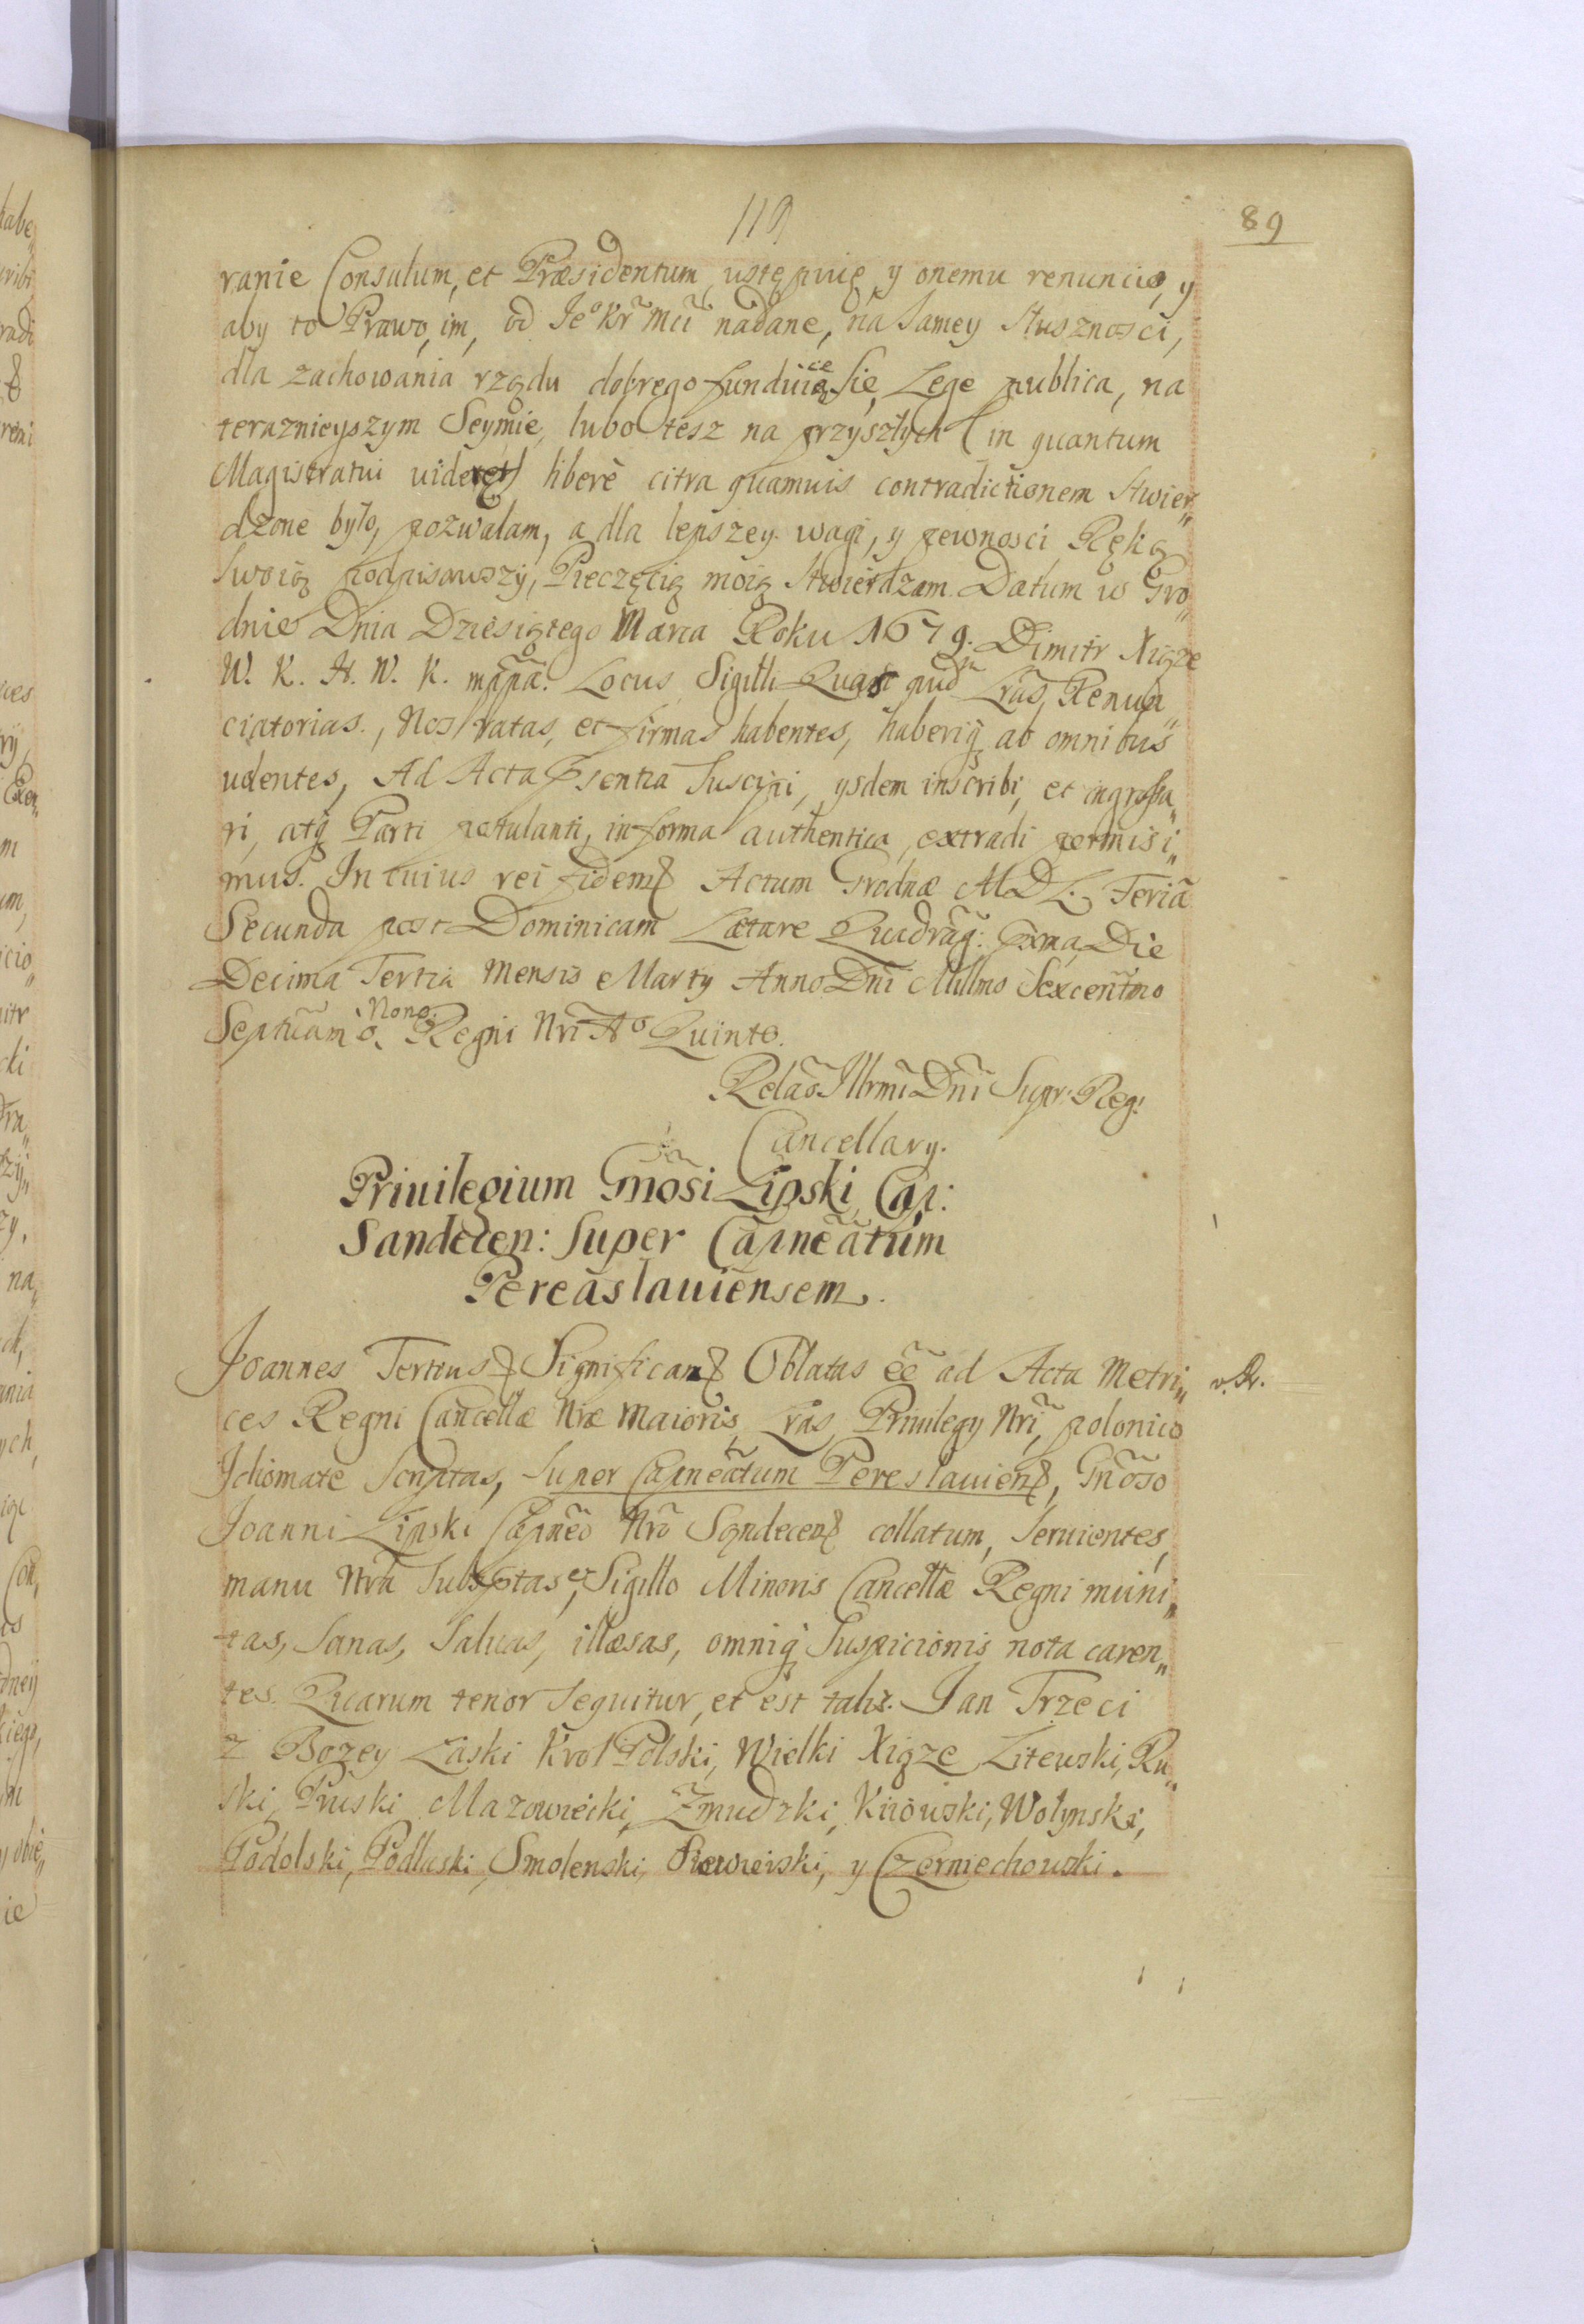 119
89
ranie Consulum, et Præsidentum, ustępuię y onemu renuncio, y
aby to Prawo, im, od Je° Kr̃ Mci nadane, na Samey Słusznosci,
dla zachowania rządu dobrego funduiące Sie, Lege publica, na
teraznieyszym Seymie, lubo tesz na przyszłych (in quantum
Magistratui videret) liberè citra quamuis contradictionem Stwier„
dzone było, pozwalam, a dla lepszey wagi, y pewnosci Ręką
Swoią podpisawszy, Pieczęcią moią Stwierdzam. Datum w Gro„
dnie Dnia Dziesiątego Marca Roku 1679. Dimitr Xiąze
W. K. H. W. K. mp̃pã. Locus Sigilli Quas quid̃ Lr̃as, Renun„
ciatorias, Nos ratas, et firmas habentes, haberiq̃ ab omnibus
uolentes, Ad Acta p̃sentia Suscipi, ysdem inscribi, et ingrossa„
ri, atq̃ Parti petulanti, in forma authentica, extradi permisi„
mus. In cuius rei fidem Actum Grodnæ M D L. Feriã
Secunda post Dominicam Lætare Quadrag̃: p̃xma, Die
Decima Tertia Mensis Marty Anno Dñi Millmo Sexcent̃mo
Septuam̃o Nono. Regni Nr̃i A° Quinto.
Relão Illr̃mi Dñi Supr: Reg:
Cancellary.
Priuilegium Gñosi Lipski Cap:
Sandecen: Super Capñeãtum
Pereãslauiensem.
Joannes Tertius Significam Oblatas eẽ ad Acta Metri„
v. Kr.
ces Regni Cancellæ Nr̃æ Maioris, Lr̃as Priuilegy Nr̃i, polonico
Idiomate Scriptas, Super Capñeãtum Pereslauien, Gñoso
Joanni Lipski Capñeo Nr̃o Sandecen collatum, Seruientes,
manu Nr̃a Subsp̃tas, et Sigillo Minoris Cancellæ Regni muni„
tas, Sanas, Saluas, illæsas, omniq̃ Suspicionis nota caren„
tes. Quarum tenor Sequitur, et est talis. Jan Trzeci
z Bozey Łaski Krol Polski, Wielki Xiąze Litewski, Ru„
ski, Pruski, Mazowiecki, Zmudzki, Kiiowski, Wołynski,
Podolski, Podlaski, Smolenski, Siewierski, y Czerniechowski.